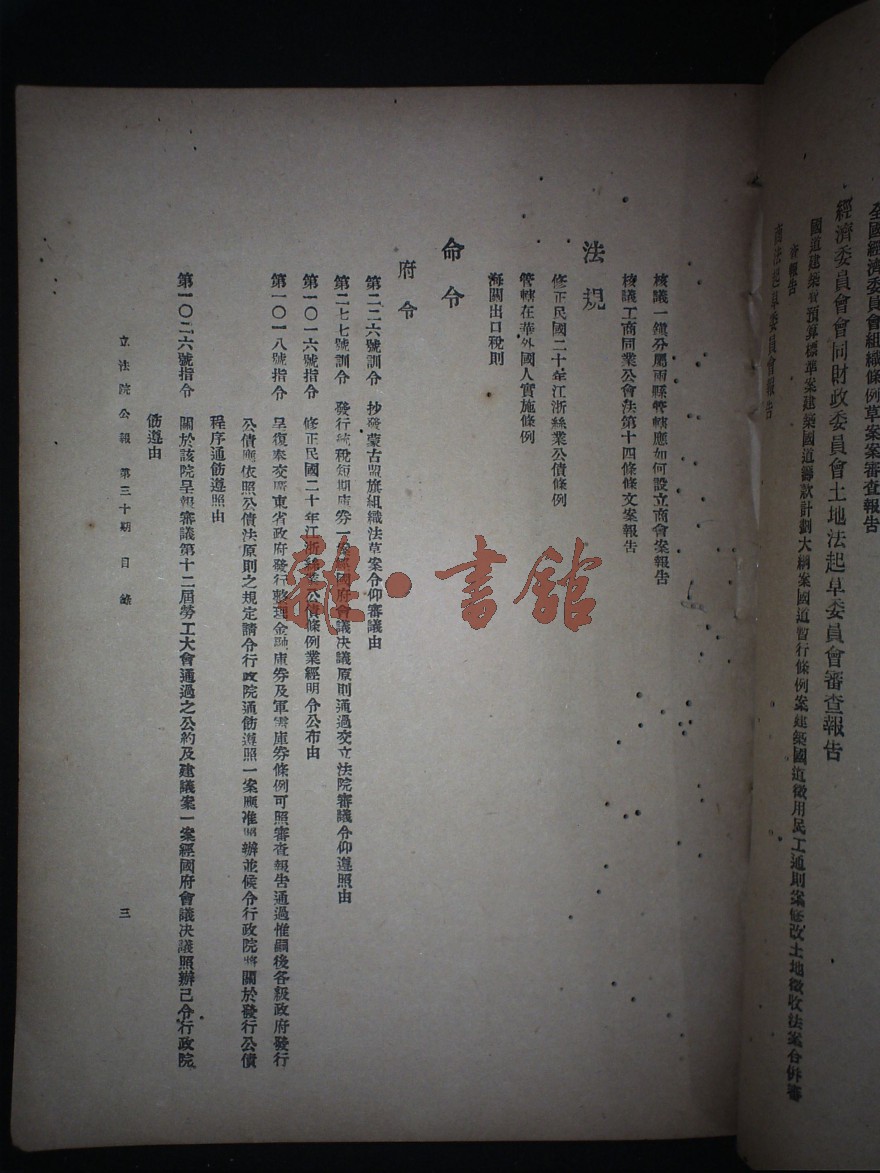 全國經濟委員會組織條例草案案審查報告
經濟委員會會同財政委員會土地法起草委員會審查報告
國道建築費預算標準案建築國道籌款計劃大綱案國道暫行條例案建築國道徵用民工通則案修改土地徵收法案合併審
查報告
商法起草委員會報告
核議一鎮分屬兩縣管轄應如何設立商會案報告
核議工商同業公會法第十四條條文案報告
法規
修正民國二十年江浙絲業公債條例
管轄在華外國人實施條例
海關出口稅則
命令
府令
第二二六號訓令 抄發蒙古盟旗組織法草案令仰審議由
第二七七號訓令 發行統稅短期庫券一案經國府會議決議原則通過交立法院審議令仰遵照由
第一〇一六號指令 修正民國二十年江浙絲業公債條例業經明令公布由
第一〇一八號指令 呈復奉交廣東省政府發行整理金融庫券及軍需庫券條例可照審查報告通過惟嗣後各級政府發行
公債應依照公債法原則之規定請令行政院通飭遵照一案應准照辦並候令行政院將關於發行公債
程序通飭遵照由
第一〇二六號指令 關於該院呈報審議第十二屆勞工大會通過之公約及建議案一案經國府會議決議照辦已令行政院
飭遵由
立法院公報 第三十期 目錄
三
雜·書館